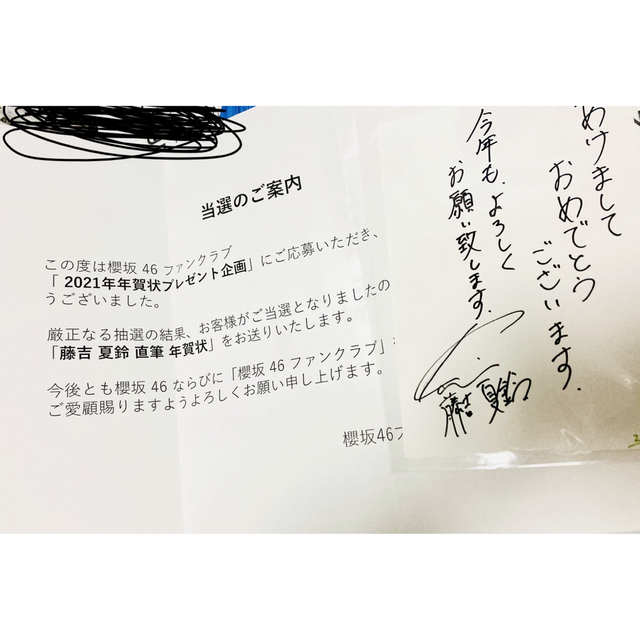 当選のご案内
この度は櫻坂 46 ファンクラブ
「 2021年年賀状プレゼント企画」にご応募いただき、
うございました。
厳正なる抽選の結果、お客様がご当選となりましたの
「藤吉 夏鈴 直筆 年賀状」をお送りいたします。
今後とも櫻坂 46 ならびに「櫻坂 46 ファンクラブ」
ご愛顧賜りますようよろしくお願い申し上げます。
櫻坂46フ
めけまして
おめでとう
ございます.
今年も、よろしく
お願い致します.
藤吉 夏鈴